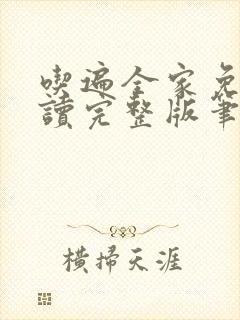 喫遍全家免
讀完整版筆
橫掃天涯